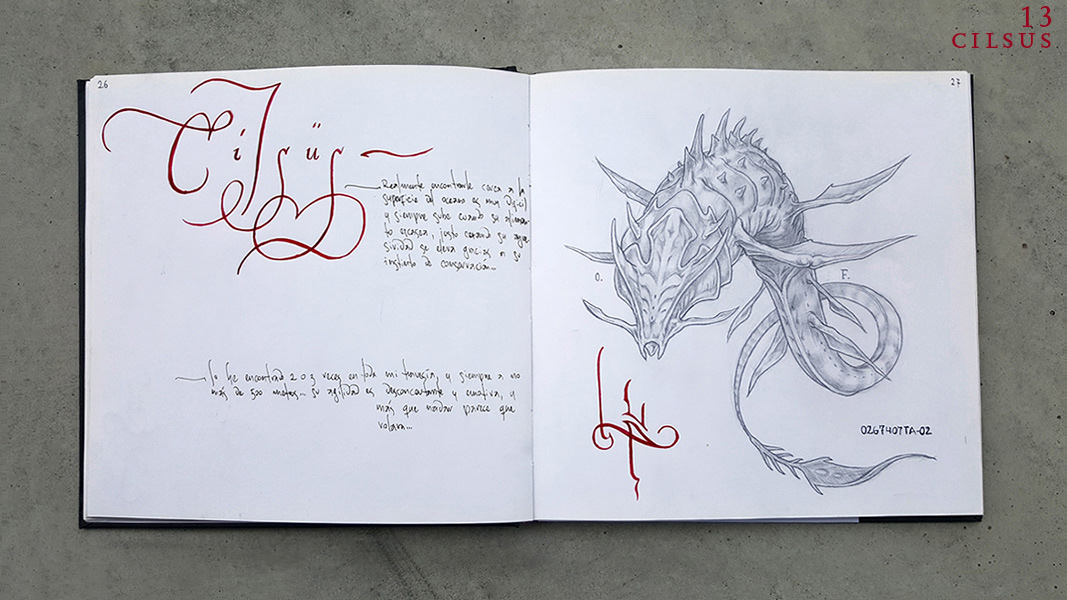 13
CILSUS
26
Cilsüs
Realmente encontrarle cerca a la
superficie del oceano es muy dificil
y siempre sube cuando su alimen-
to escasea, justo cuando su agre-
sividad se eleva gracias a su
instinto de conservación...
Lo he encontrado 2 o 3 veces en toda mi travesía, y siempre a no
más de 500 metros... su agilidad es desconcertante y emotiva, y
más que nadar parece que
volara...
27
O.
F.
026740TTA-02